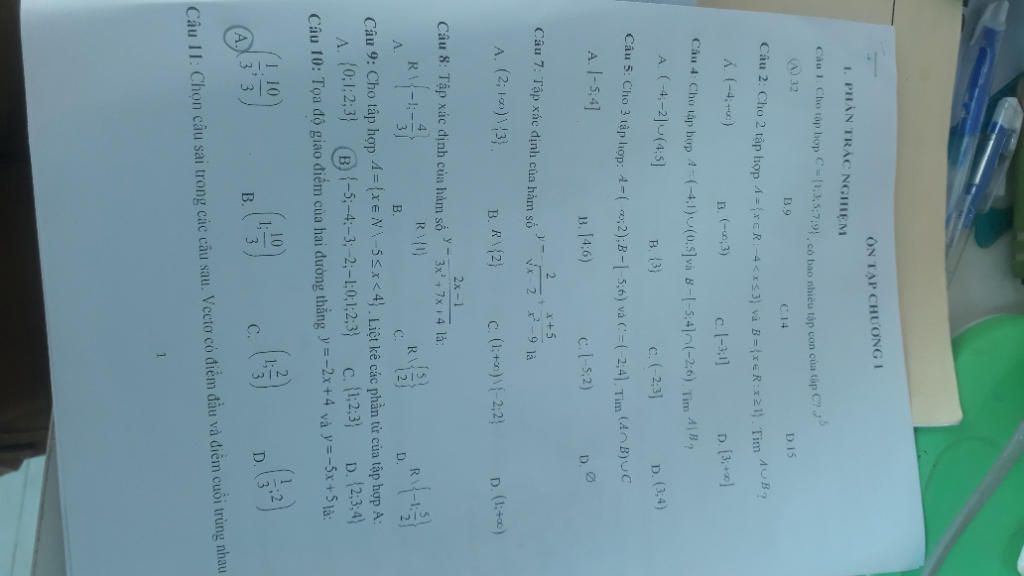 ÔN TẬP CHƯƠNG I
I. PHẦN TRẮC NGHIỆM
Câu 1: Cho tập hợp C={1;3;5;7;9}, có bao nhiêu tập con của tập C? 2^5
A. 32 B.9 C.14 D.15
Câu 2: Cho 2 tập hợp A={x∈R:-4<x≤3} và B={x∈R:x≥1}. Tìm A∪B?
A. (-4;+∞) B. (-∞;3) C. [-3;1] D. [3;+∞]
Câu 4: Cho tập hợp A=(-4;1)∪(0;5] và B=[-5;4]∩(-2;6). Tìm A\B?
A. (-4;-2]∪(4;5] B. {3} C. (-2;3] D. (3;4)
Câu 5: Cho 3 tập hợp: A=(-∞;2); B=[-5;6) và C=(-2;4]. Tìm (A∩B)∪C
A. [-5;4] B. [4;6) C. [-5;2) D. ∅
Câu 7: Tập xác định của hàm số y = 2/√(x-2) + (x+5)/(x²-9) là
A. (2;+∞)\{3}. B. R\{2} C. (1;+∞)\{-2;2} D. (1;+∞)
Câu 8: Tập xác định của hàm số y = (2x-1)/(3x²+7x+4) là:
A. R\{-1;-4/3} B. R\{1} C. R\{5/2} D. R\{-1;5/2}
Câu 9: Cho tập hợp A={x∈N\-5≤x<4}. Liệt kê các phần tử của tập hợp A:
A. {0;1;2;3} B. {-5;-4;-3;-2;-1;0;1;2;3} C. {1;2;3} D. {2;3;4}
Câu 10: Tọa độ giao điểm của hai đường thẳng y=-2x+4 và y=-5x+5 là:
A. (1/3;10/3) B. (1;10/3) C. (1;2/3) D. (1/3;2)
Câu 11: Chọn câu sai trong các câu sau. Vectơ có điểm đầu và điểm cuối trùng nhau
1